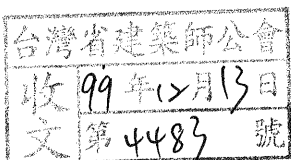 台灣省建築師公會
收文
99年12月13日
第4483號